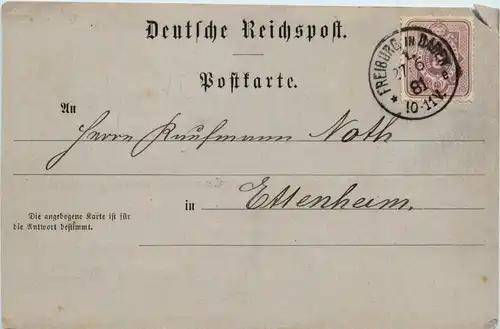 Deutsche Reichspost.
Postkarte.
FREIBURG IN BADEN
27 6
81
* 10-11V.
An
Herrn Kaufmann Noth
in Ettenheim.
Die angebogene Karte ist für
die Antwort bestimmt.